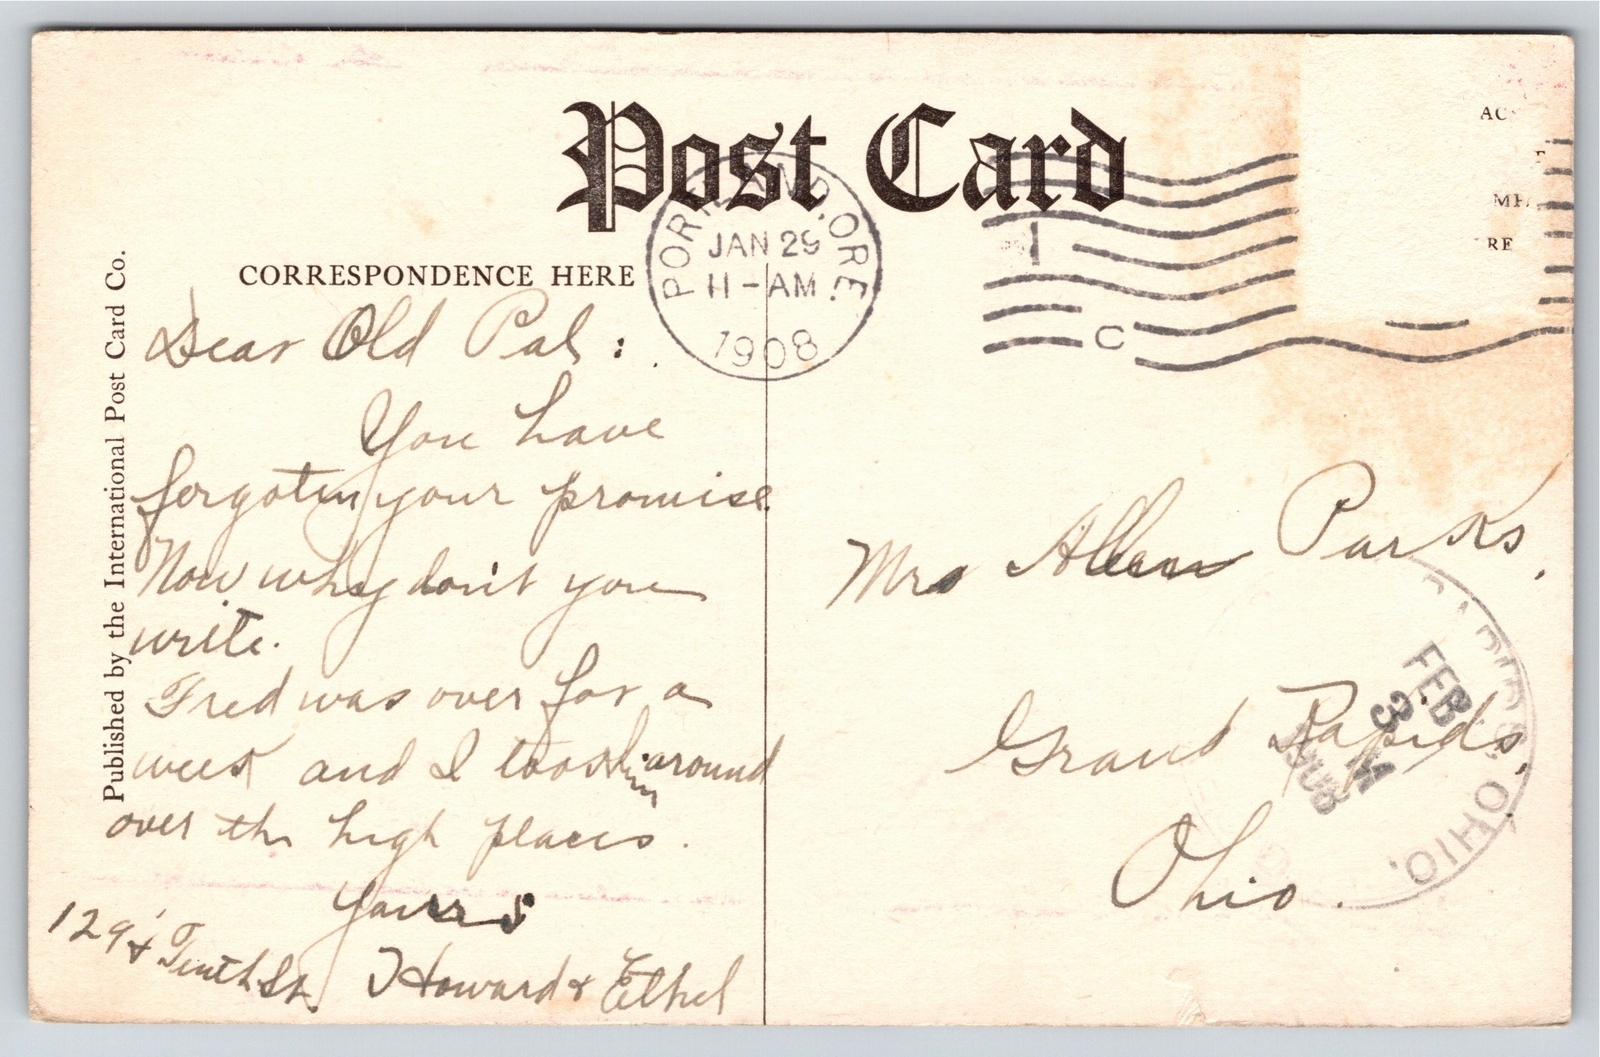 Post Card
CORRESPONDENCE HERE
PORTLAND, ORE.
JAN 29
11-AM
1908
C
AC
ME
RE
Published by the International Post Card Co.
Dear Old Pal:
You have
forgoten your promise.
Now why don't you
write.
Fred was over for a
week and I took him around
over the high places.
Yours
Howard & Ethel
129½ Tenth St.
Mrs Allen Parks,
Grand Rapids,
Ohio.
FEB
3
M
1908
OHIO.